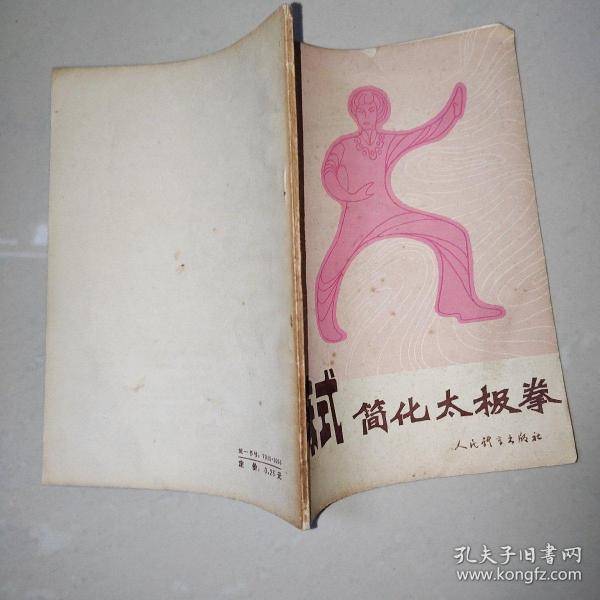 式 简化太极拳
人民体育出版社
统一书号:7015·1894
定 价: 0.25 元
孔夫子旧書网
www.kongfz.com